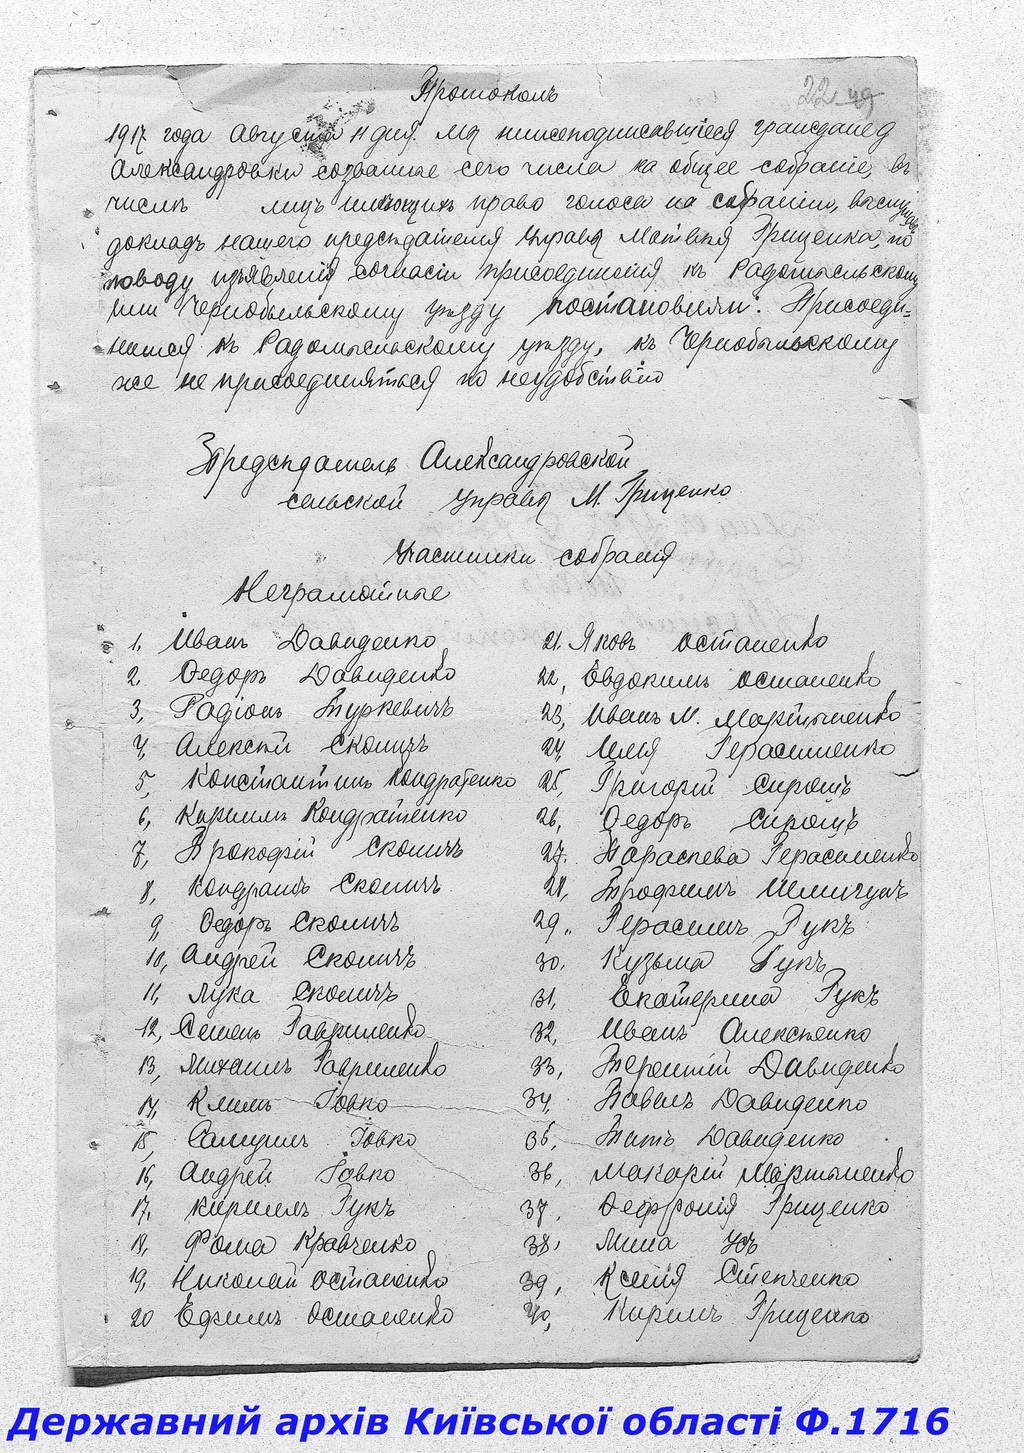 Протоколъ
22 49
1917 года Августа 11 дня. Мы нижеподписавшіеся граждане д
Александровки созванные сего числа на общее собраніе, въ
числѣ лицъ имѣющихъ право голоса на собраніи, выслушавъ
докладъ нашего предсѣдателя Управы Матвѣя Гриценка, по
поводу изъявленія согласія присоединенія къ Радомысльскому
или Чернобыльскому уѣзду постановили: Присоеди-
нится къ Радомысльскому уѣзду, къ Чернобыльскому
же не присоединяться по неудобствію
Предсѣдатель Александровской
сельской Управы М. Гриценко
Участники собранія
Неграмотные
1. Иванъ Давиденко
2. Федоръ Давиденко
3, Радіонъ Туркевичъ
4, Алексѣй Скопичъ
5, Константинъ Кондратенко
6, Кирилъ Кондратенко
7, Прокофій Скопичъ
8, Кондратъ Скопичъ
9, Федоръ Скопичъ
10, Андрей Скопичъ
11, Лука Скопичъ
12, Семенъ Гавриленко
13, Михаилъ Гавриленко
14, Климъ Іовко
15, Самуилъ Іовко
16, Андрей Іовко
17, Кирилъ Гукъ
18, Фома Кравченко
19, Николай Остапенко
20 Ефимъ Остапенко
21. Яковъ Остапенко
22, Евдокимъ Остапенко
23, Иванъ М. Мартыненко
24, Илья Герасименко
25, Григорій Сиротъ
26, Федоръ Сиротъ
27. Параскева Герасименко
28, Трофимъ
29,, Герасимъ Гукъ
30. Кузьма Гукъ
31, Екатерина Гукъ
32, Иванъ Алексѣенко
33, Терентій Давиденко
34, Павелъ Давиденко
35, Титъ Давиденко
36, Макарій Мартыненко
37, Фефронія Гриценко
38, Мина Усъ
39, Ксенія Степченко
40, Кирилъ Гриценко
Державний архів Київської області Ф.1716